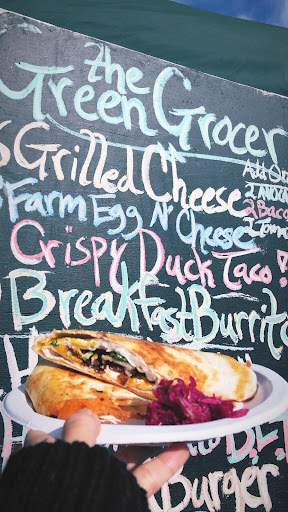 the
Green Grocer
Grilled Cheese
Add On
Farm Egg N' Cheese
Crispy Duck Taco!
Breakfast Burrito
Burger